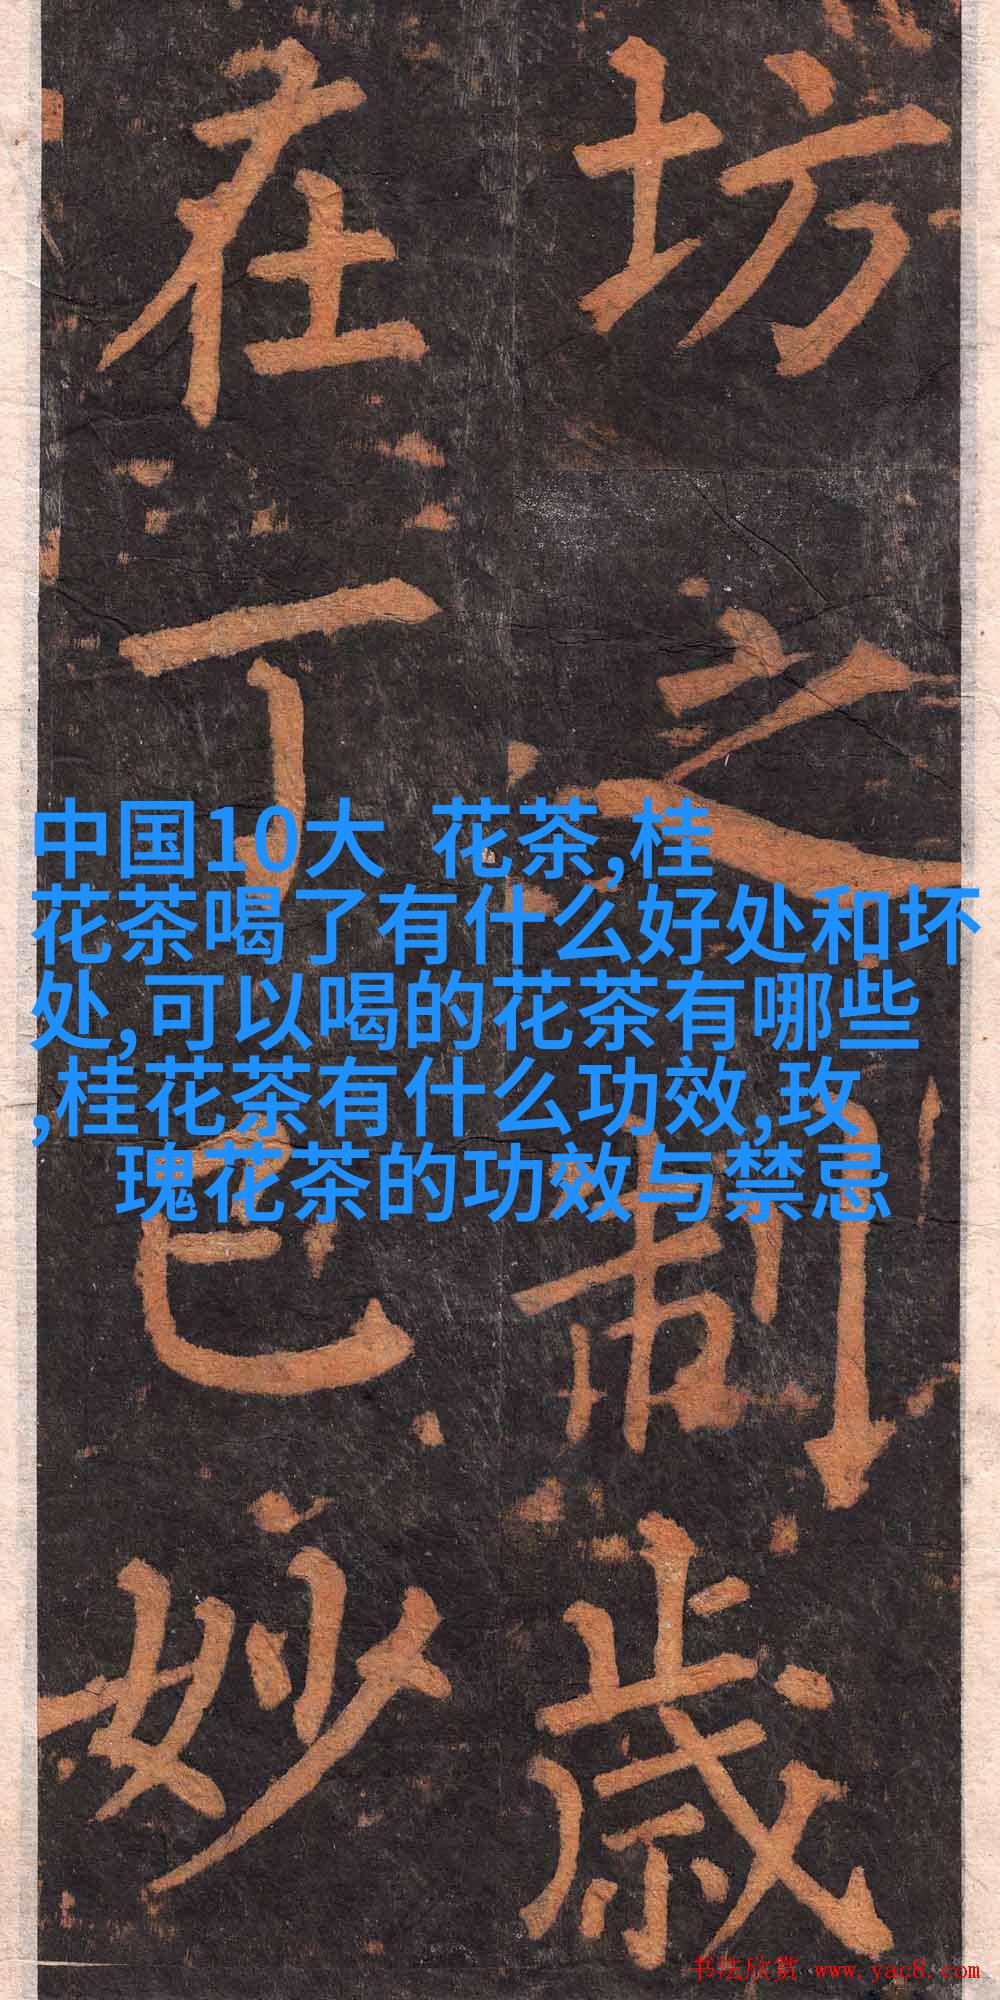 坊之制歳
在丁巳妙
中国10大 花茶,桂
花茶喝了有什么好处和坏
处,可以喝的花茶有哪些
,桂花茶有什么功效,玫
瑰花茶的功效与禁忌
书法欣赏 www.yac8.com